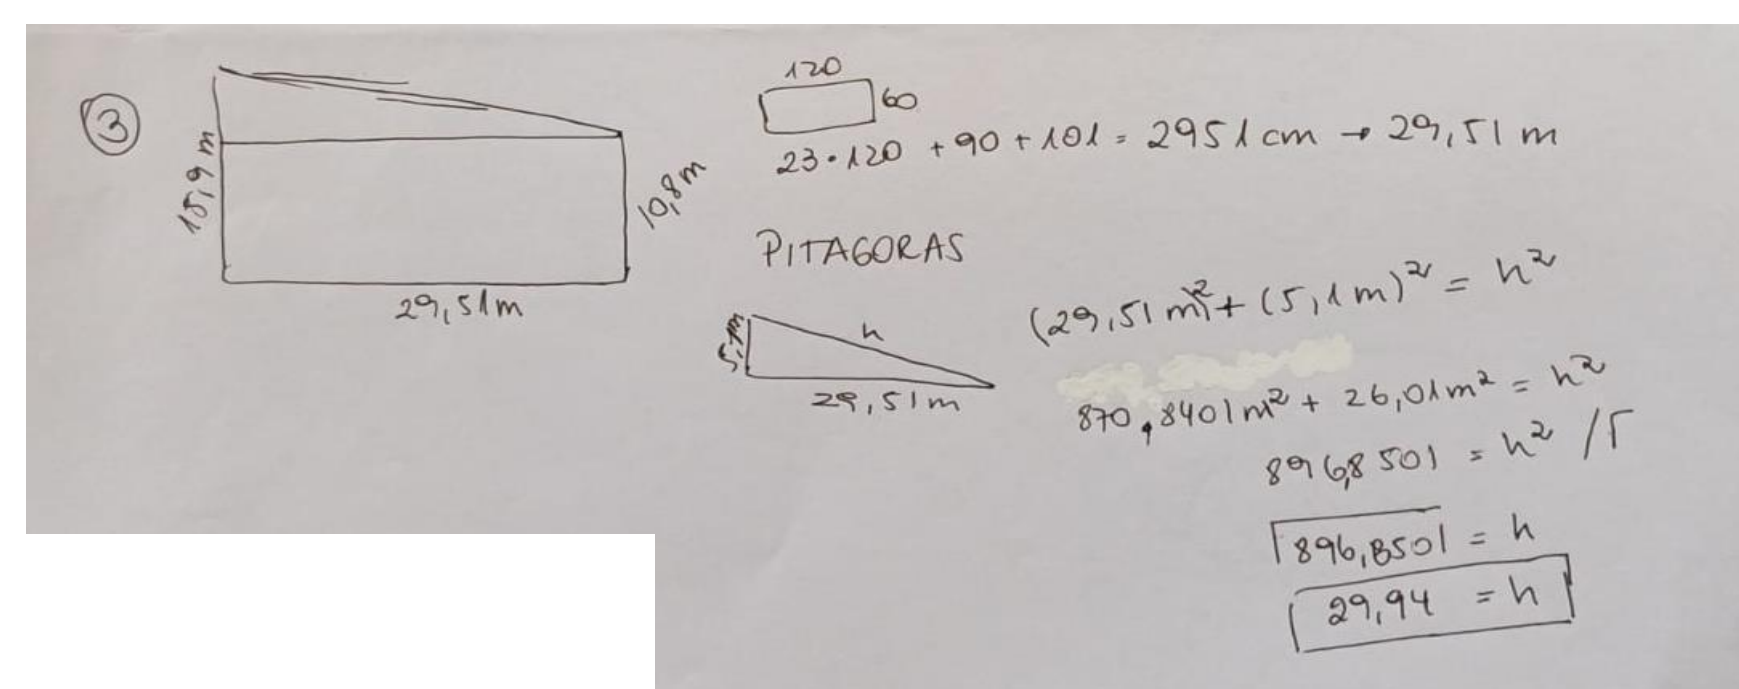 3
15,9 m
10,8m
29,51m
120
60
23·120 + 90 + 101 = 2951 cm → 29,51 m
PITAGORAS
h
29,51m
(29,51 m)² + (5,1 m)² = h²
870,8401 m² + 26,01 m² = h²
896,8501 = h² /√
√896,8501 = h
29,94 = h